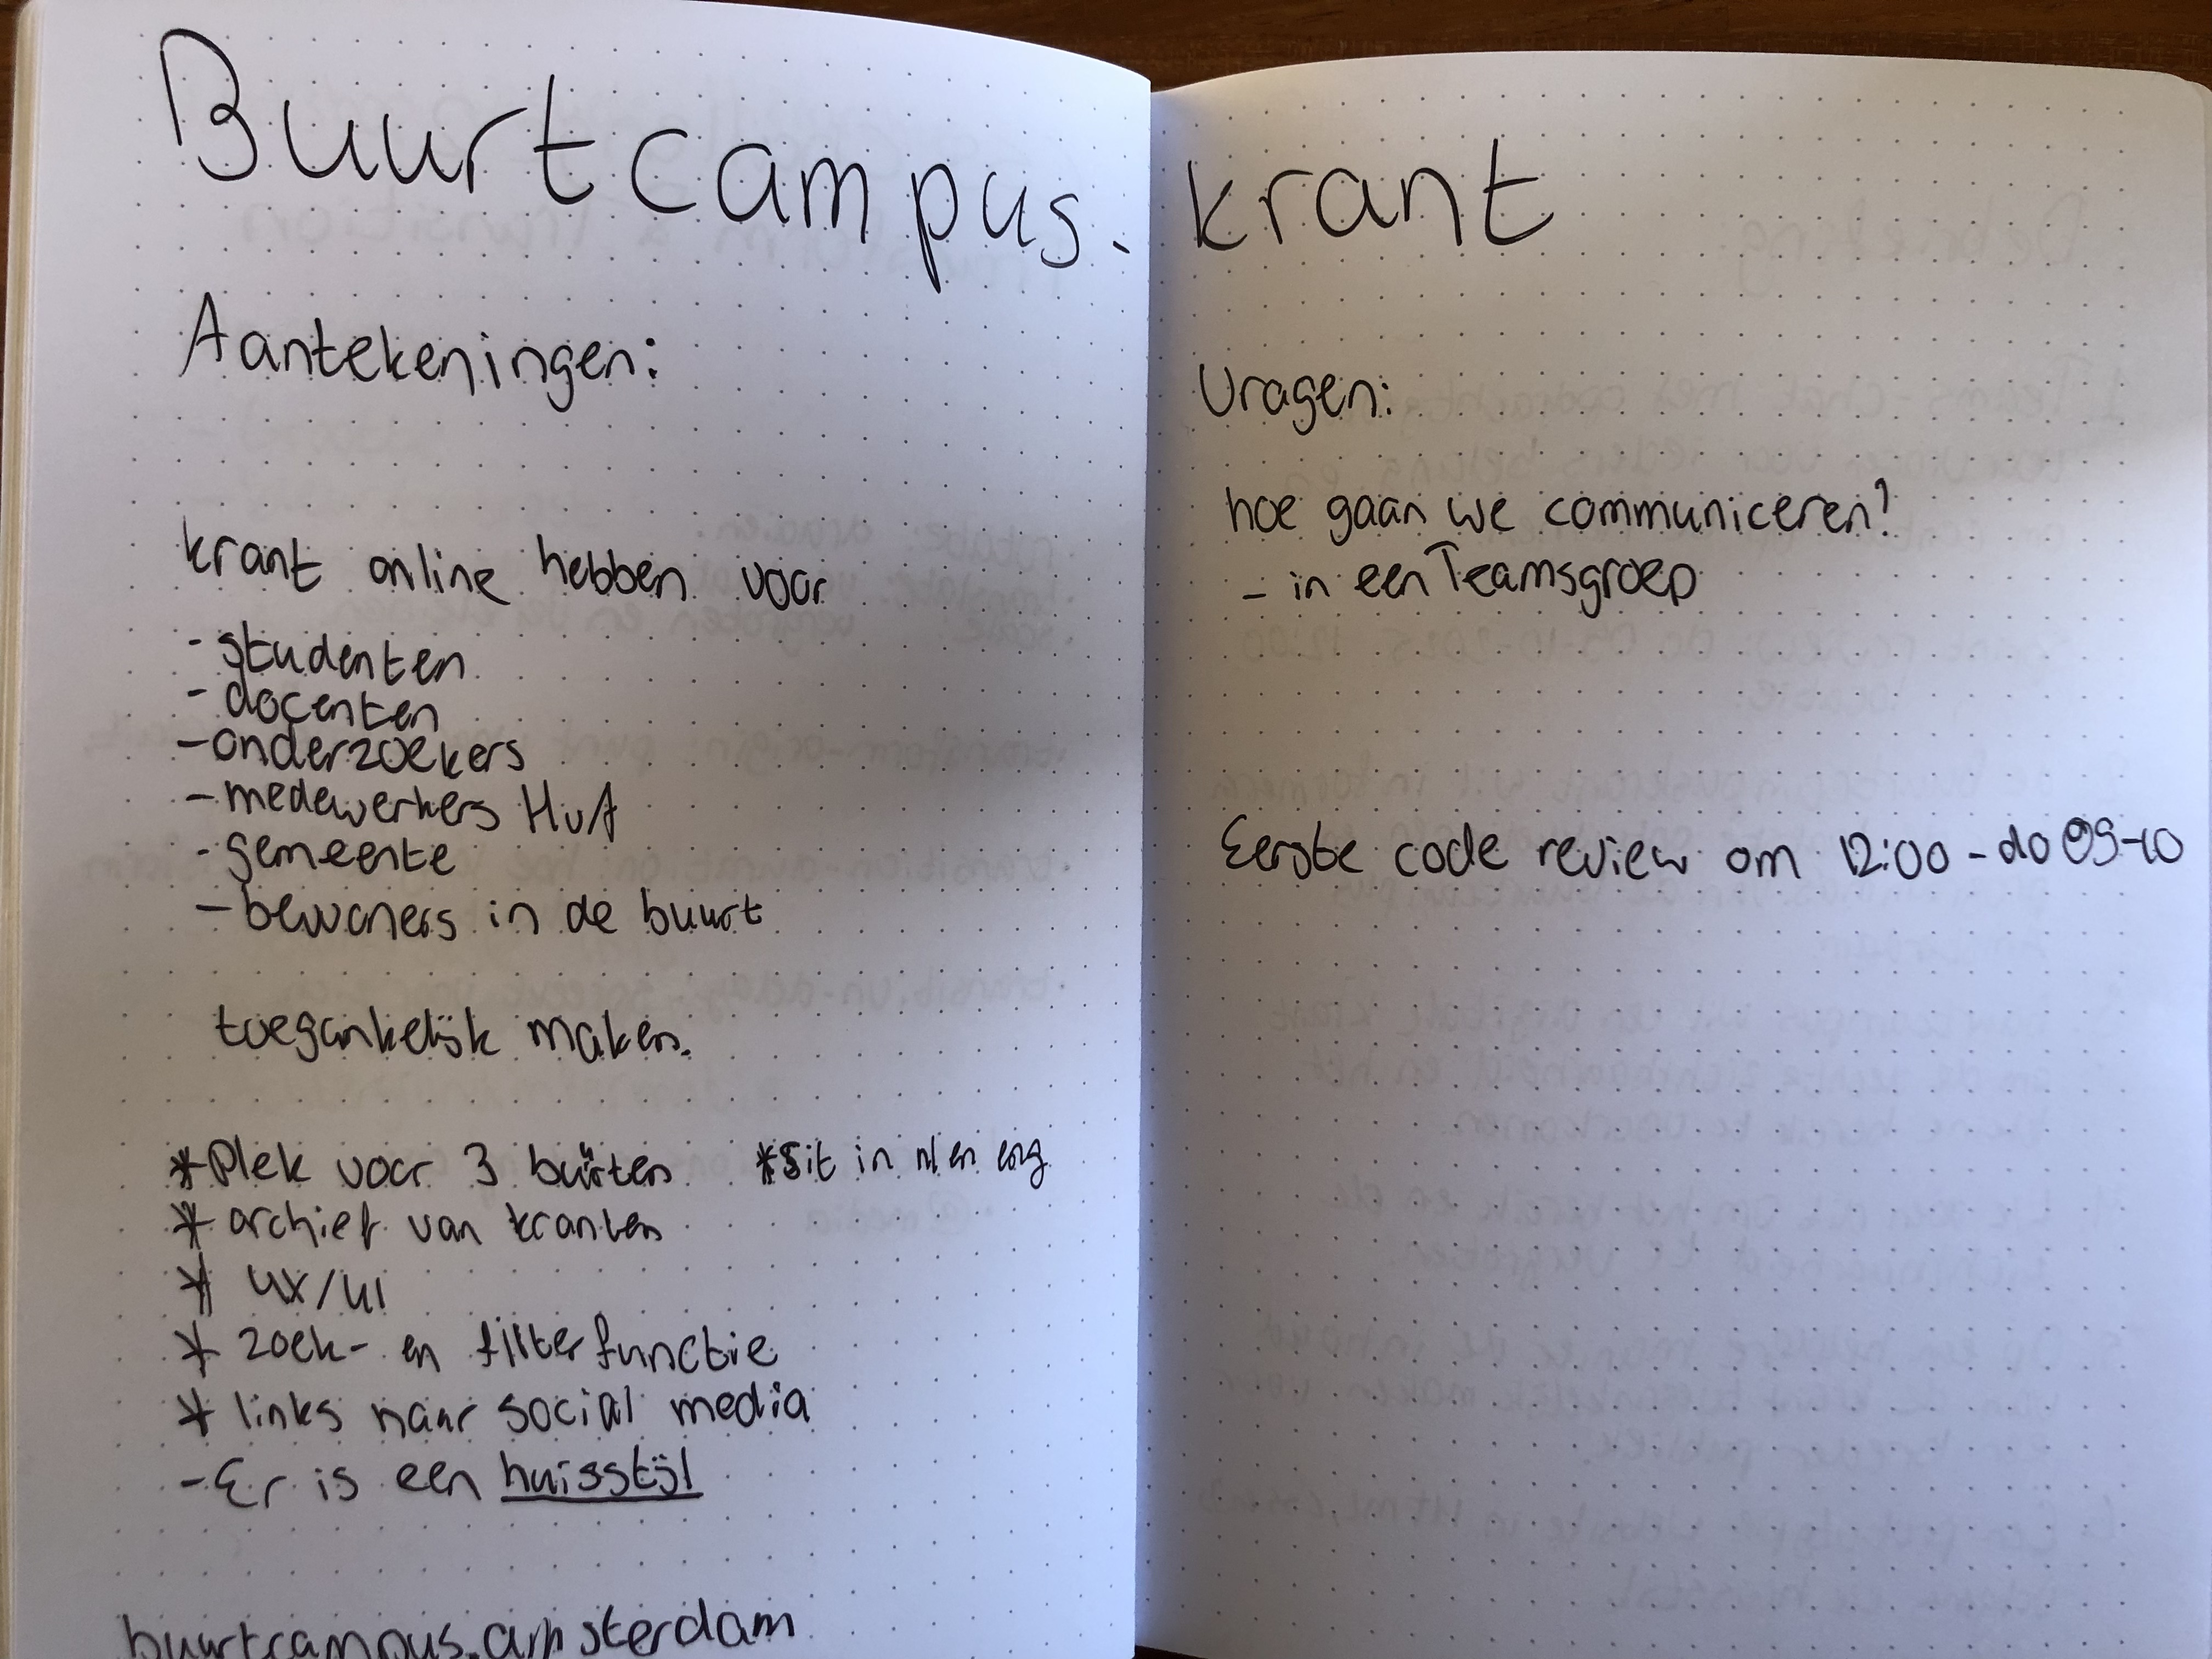 Buurtcampus-krant
Aantekeningen:
krant online hebben voor
- studenten
- docenten
- onderzoekers
- medewerkers HvA
- gemeente
- bewoners in de buurt
toegankelijk maken.
* Plek voor 3 buurten
* Sit in nl en eng
* archief van kranten
* UX/UI
* zoek- en filterfunctie
* links naar social media
- Er is een huisstijl
buurtcampus.amsterdam
Vragen:
hoe gaan we communiceren?
- in een Teamsgroep
Eerste code review om 12:00 - do 09-10